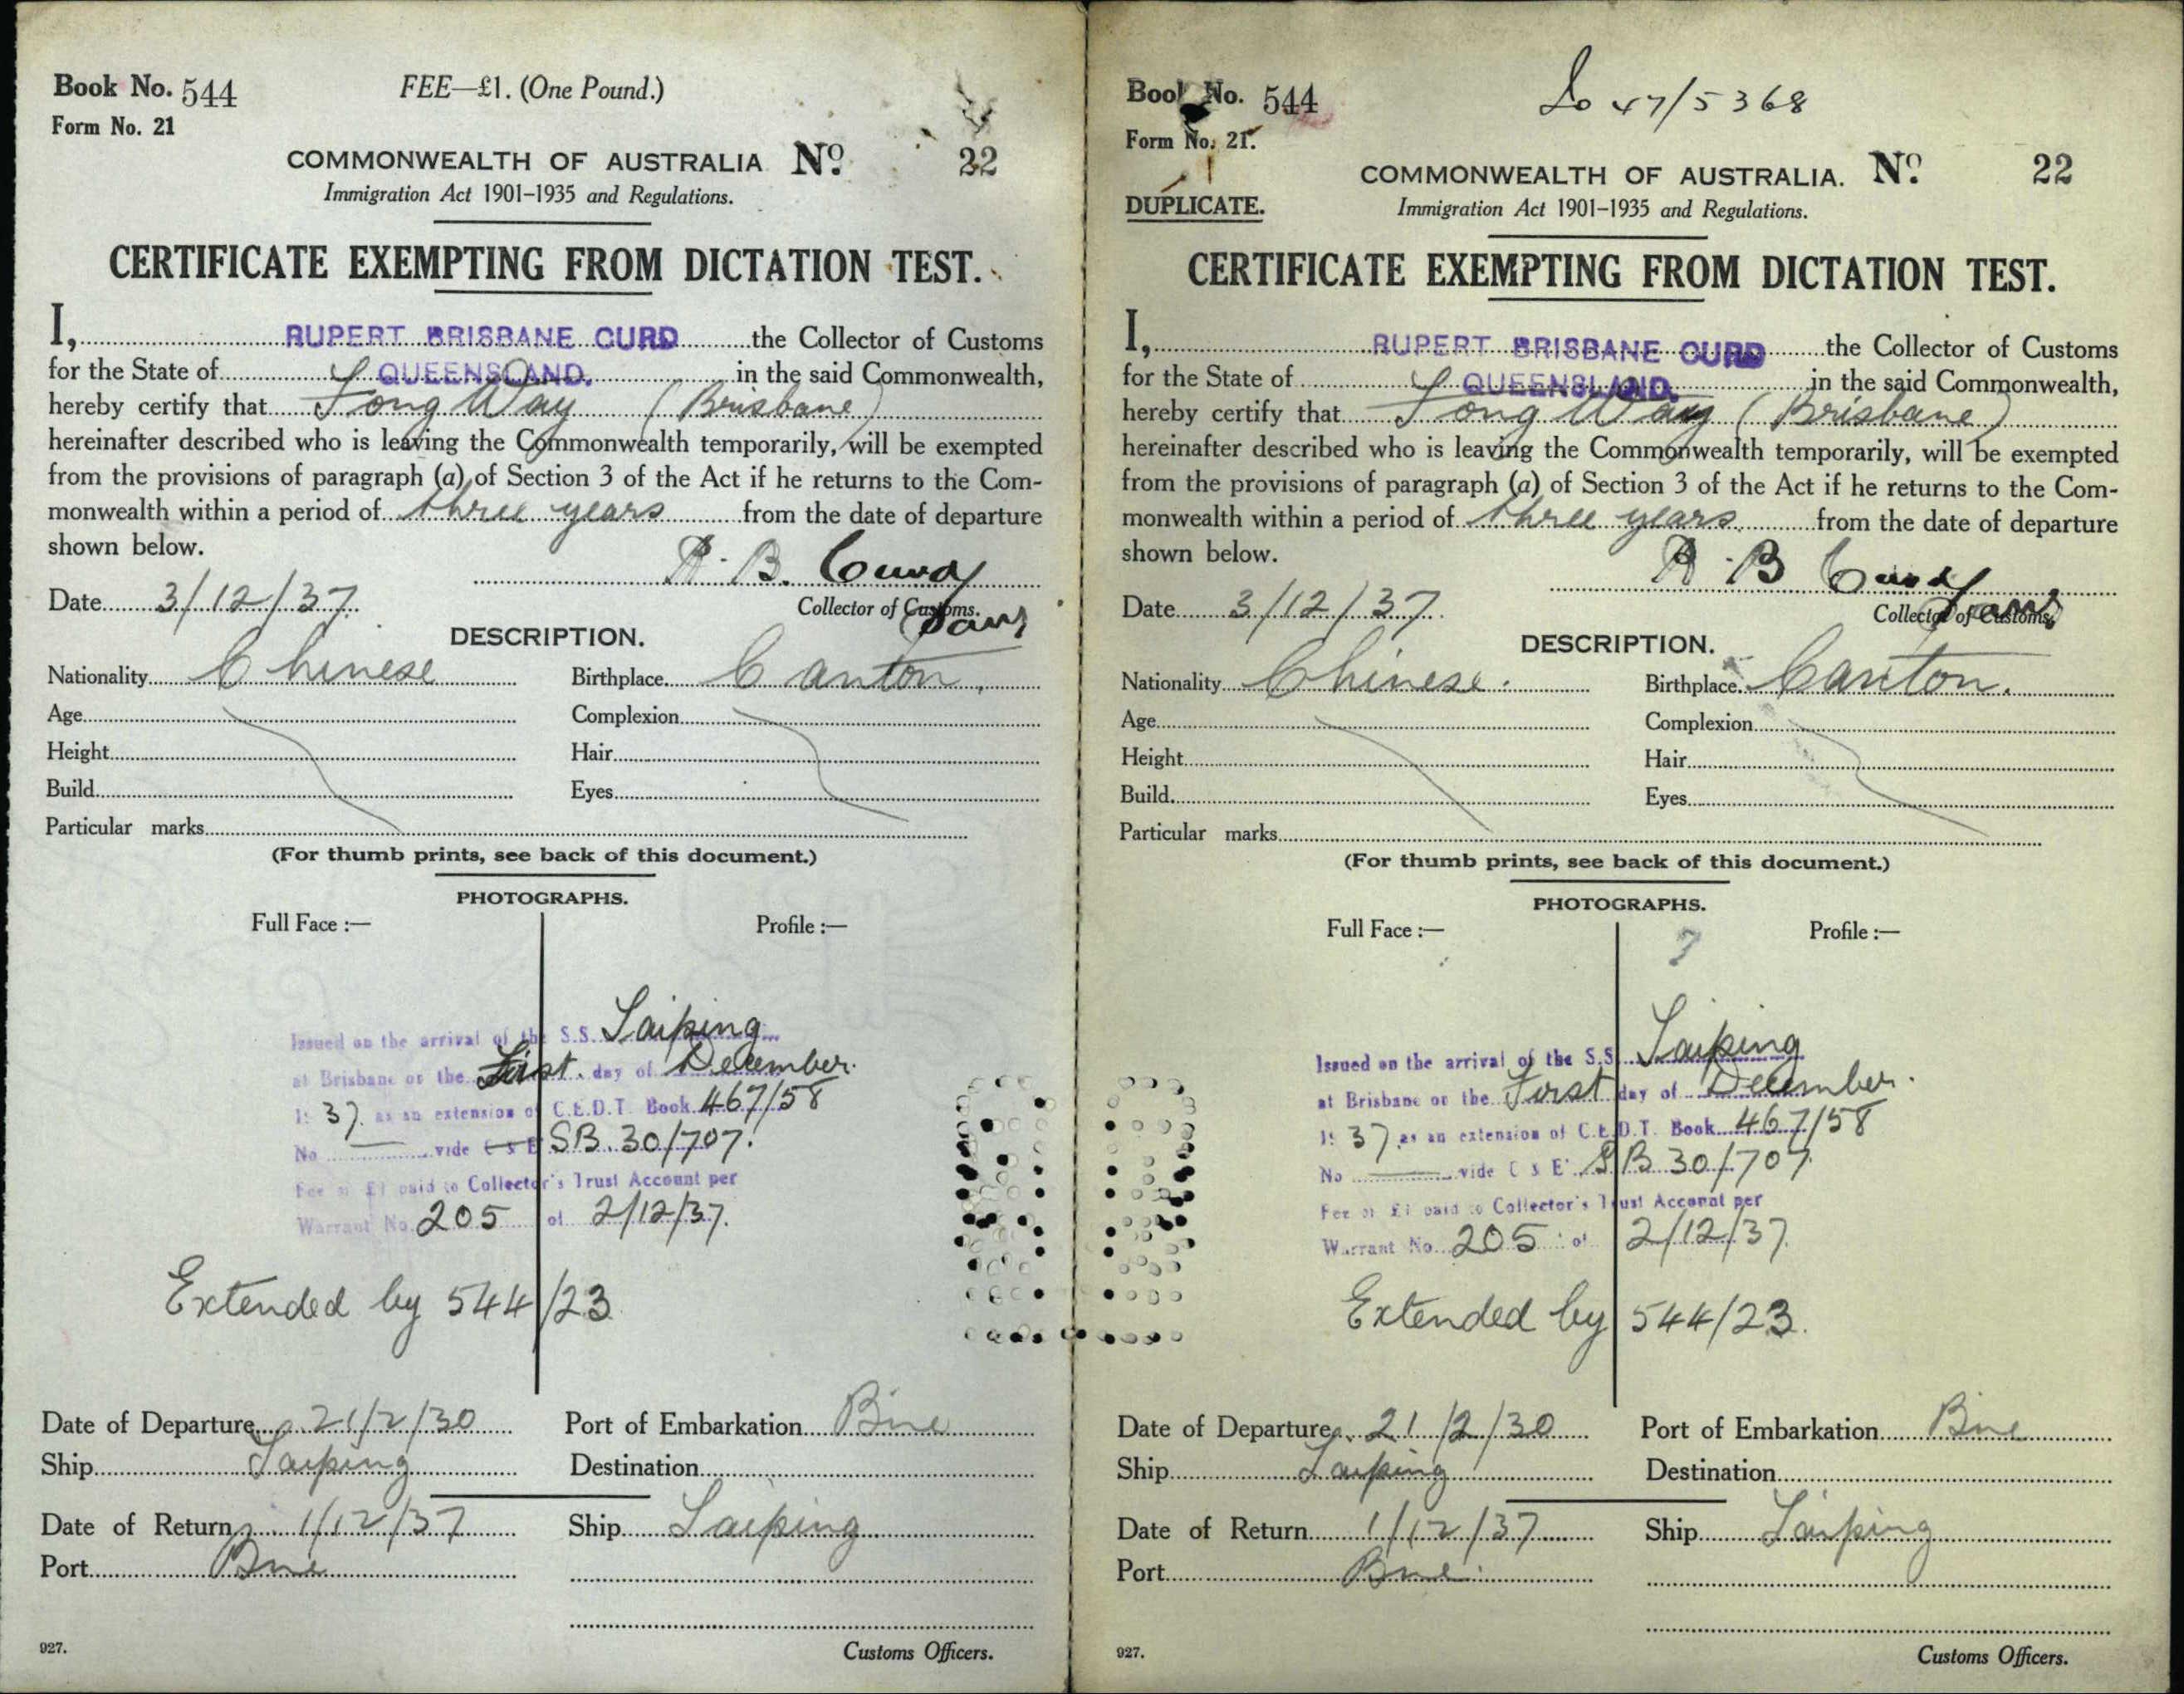 Book No. 544
FEE—£1. (One Pound.)
Form No. 21
COMMONWEALTH OF AUSTRALIA No. 22
Immigration Act 1901–1935 and Regulations.
CERTIFICATE EXEMPTING FROM DICTATION TEST.
I, RUPERT BRISBANE CURD the Collector of Customs
for the State of QUEENSLAND. in the said Commonwealth,
hereby certify that Fong Way (Brisbane)
hereinafter described who is leaving the Commonwealth temporarily, will be exempted
from the provisions of paragraph (a) of Section 3 of the Act if he returns to the Com-
monwealth within a period of three years from the date of departure
shown below.
R. B. Curd
Date 3/12/37. Collector of Customs.
DESCRIPTION.
Nationality Chinese Birthplace Canton.
Age Complexion
Height Hair
Build Eyes
Particular marks
(For thumb prints, see back of this document.)
PHOTOGRAPHS.
Full Face :— Profile :—
Issued on the arrival of the S.S. Taiping
at Brisbane on the First day of December.
1937 as an extension of C.E.D.T. Book 467/58
No vide C & E SB.30/707.
Fee of £1 paid to Collector's Trust Account per
Warrant No. 205 of 2/12/37.
Extended by 544/23
Date of Departure 21/2/30 Port of Embarkation Bne
Ship Taiping Destination
Date of Return 1/12/37 Ship Taiping
Port Bne
927. Customs Officers.
Book No. 544
47/5368
Form No. 21.
COMMONWEALTH OF AUSTRALIA. No. 22
DUPLICATE.
Immigration Act 1901–1935 and Regulations.
CERTIFICATE EXEMPTING FROM DICTATION TEST.
I, RUPERT BRISBANE CURD the Collector of Customs
for the State of QUEENSLAND. in the said Commonwealth,
hereby certify that Fong Way (Brisbane)
hereinafter described who is leaving the Commonwealth temporarily, will be exempted
from the provisions of paragraph (a) of Section 3 of the Act if he returns to the Com-
monwealth within a period of three years from the date of departure
shown below.
R. B Curd
Date 3/12/37. Collector of Customs.
DESCRIPTION.
Nationality Chinese. Birthplace Canton.
Age Complexion
Height Hair
Build Eyes
Particular marks
(For thumb prints, see back of this document.)
PHOTOGRAPHS.
Full Face :— Profile :—
Issued on the arrival of the S.S. Taiping
at Brisbane on the First day of December.
1937 as an extension of C.E.D.T. Book 467/58
No vide C & E SB 30/707
Fee of £1 paid to Collector's Trust Account per
Warrant No. 205 of 2/12/37.
Extended by 544/23.
Date of Departure 21/2/30 Port of Embarkation Bne
Ship Taiping Destination
Date of Return 1/12/37 Ship Taiping
Port Bne.
927. Customs Officers.